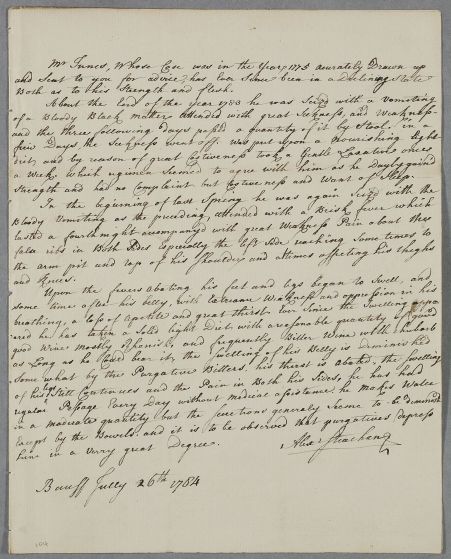 Mr Innes, Whose Case was in the Year 1775 acurately Drawn up
and Sent to you for advice, has Ever Since been in a Declining State
Both as to his Strength and flesh.
About the End of the Year 1783 he was Seized with a vomiting
of a Bloody Black matter attended with great Sickness, and Weakness
and the three following Days passd a quantity of it by Stool, in
few Days, the Sickness went off. was put upon a nourishing light
Diet, and by reason of great Costiveness took a Gentle Laxative once
a Week, which regimen Seemed to agree with him as he Dayly gaind
Strength and had no Complaint but Costiveness and Want of Sleep.
In the beginning of last Spring he was again Seizd with the
Bloody Vomiting as the preceeding, attended with a Brisk fever which
lasted a fourthnight accompanyd with great Weakness Pain about the
false ribs in Both Sides Especially the left Side reaching Some times to
the arm pit and top of his Shoulder and attimes affecting his thighs
and Knees.
Upon the fevers abating his feet and legs began to Swell, and
some time after his belly, with Extreme Weakness and oppression in his
breathing, a loss of apetite and great thirst. Ever Since the Swelling appea
red he has taken a Solid light Diet with a reasonable quantity of good
good Wine mostly Rhenish, and frequently Bitter Wine with rhubarb
as Long as he Could bear it, the Swelling of his Belly is diminished
Some what by the Purgative Bitters, his thirst is abated, the Swelling
of his legs Still Continues and the Pain in Both his Sides, he has had
regular Passage Every Day without medical assistance, he makes Water
in a moderate quantity but the Secretions generally Seeme to be diminish
Except by the Bowels. and it is to be observed that purgatives depress
him in a Very great Degree.
Alexr Strachan
Banff July 26th 1784
104